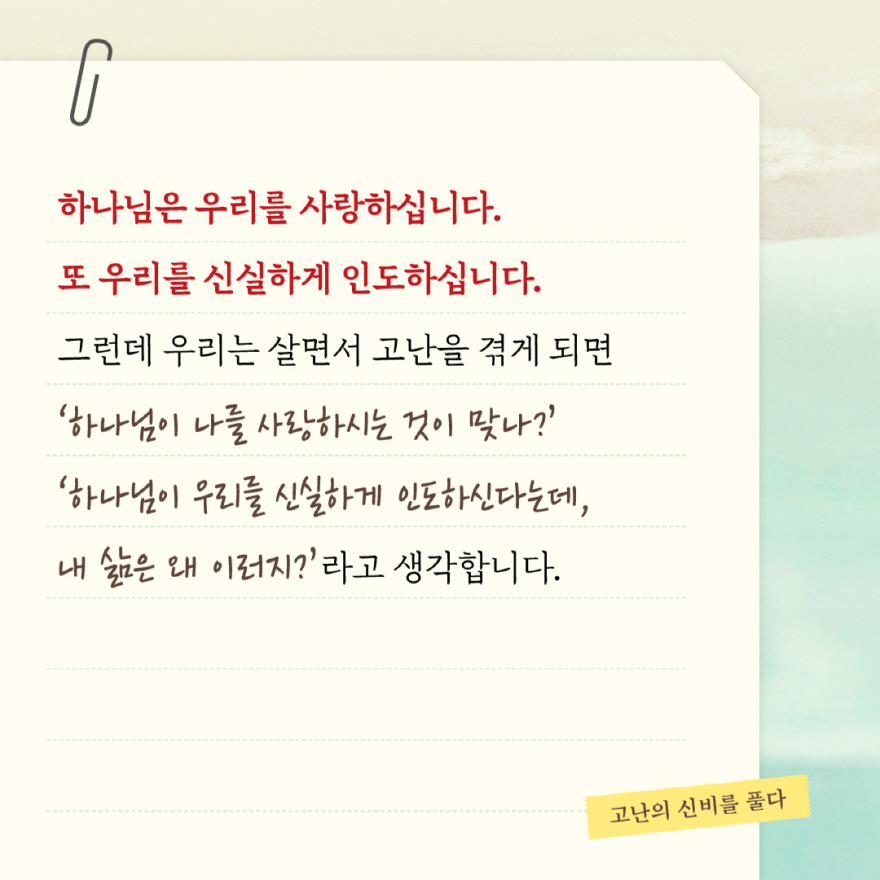 하나님은 우리를 사랑하십니다.
또 우리를 신실하게 인도하십니다.
그런데 우리는 살면서 고난을 겪게 되면
‘하나님이 나를 사랑하시는 것이 맞나?’
‘하나님이 우리를 신실하게 인도하신다는데,
내 삶은 왜 이러지?’라고 생각합니다.
고난의 신비를 풀다